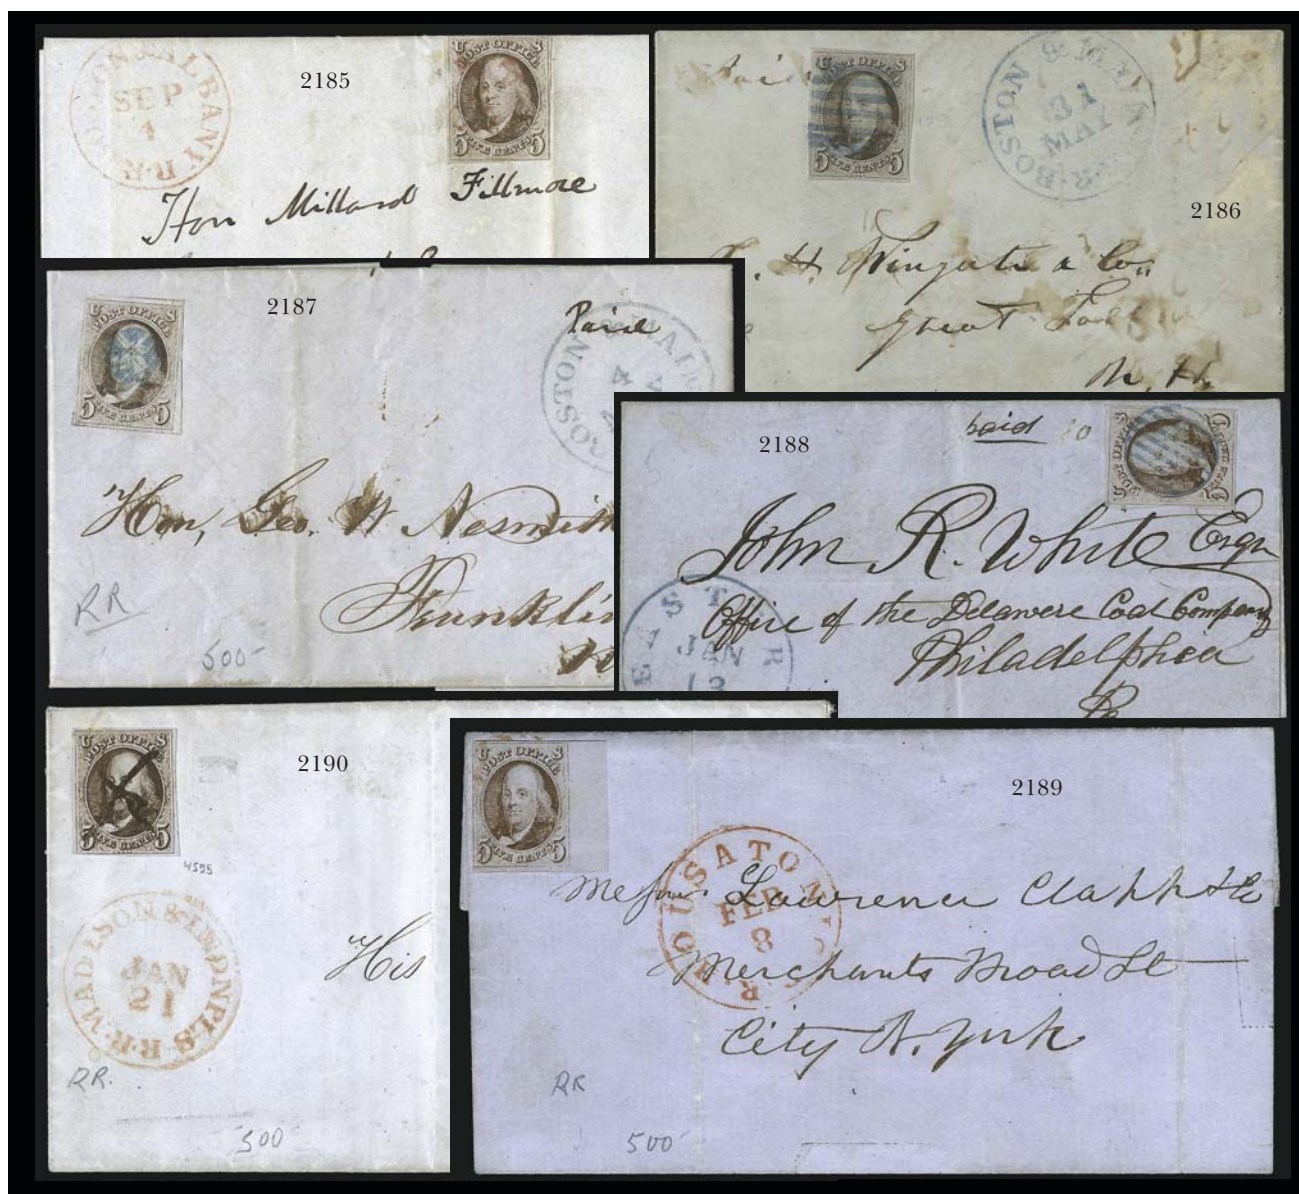 BOSTON & ALBANY R.R.
SEP
4
2185
U S
POST OFFICE
5 FIVE CENTS 5
Hon Millard Fillmore
U S
POST OFFICE
5 FIVE CENTS 5
BOSTON & MAIN R.R.
31
MAY
2186
H. Wingate & Co.
Great Falls
N. H.
U S
POST OFFICE
5 FIVE CENTS 5
2187
Paid
BOSTON & MAIN
Hon, Geo. W Nesmith
Franklin
RR
500-
2188
paid 10
U S
POST OFFICE
5 FIVE CENTS 5
John R. White Esqr
Office of the Delaware Coal Company
Philadelphia
Pa
EASTER R
JAN
13
U S
POST OFFICE
5 FIVE CENTS 5
2190
4595
MADISON & INDNPLS R.R.
JAN
21
His
RR.
500-
U S
POST OFFICE
5 FIVE CENTS 5
2189
HOUSATONIC R R
FEB
8
Messrs Lawrence Clapp & Co
Merchants Broad St
City N. York
RR
500-